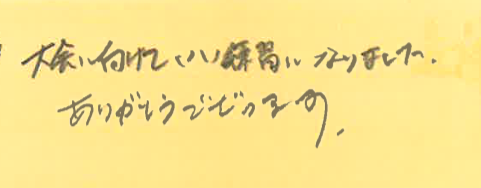 大会に向けていい練習になりました.
ありがとうございます.